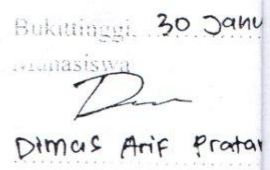 Bukittinggi, 30 Janu
Mahasiswa
Dimas Arif Pratar